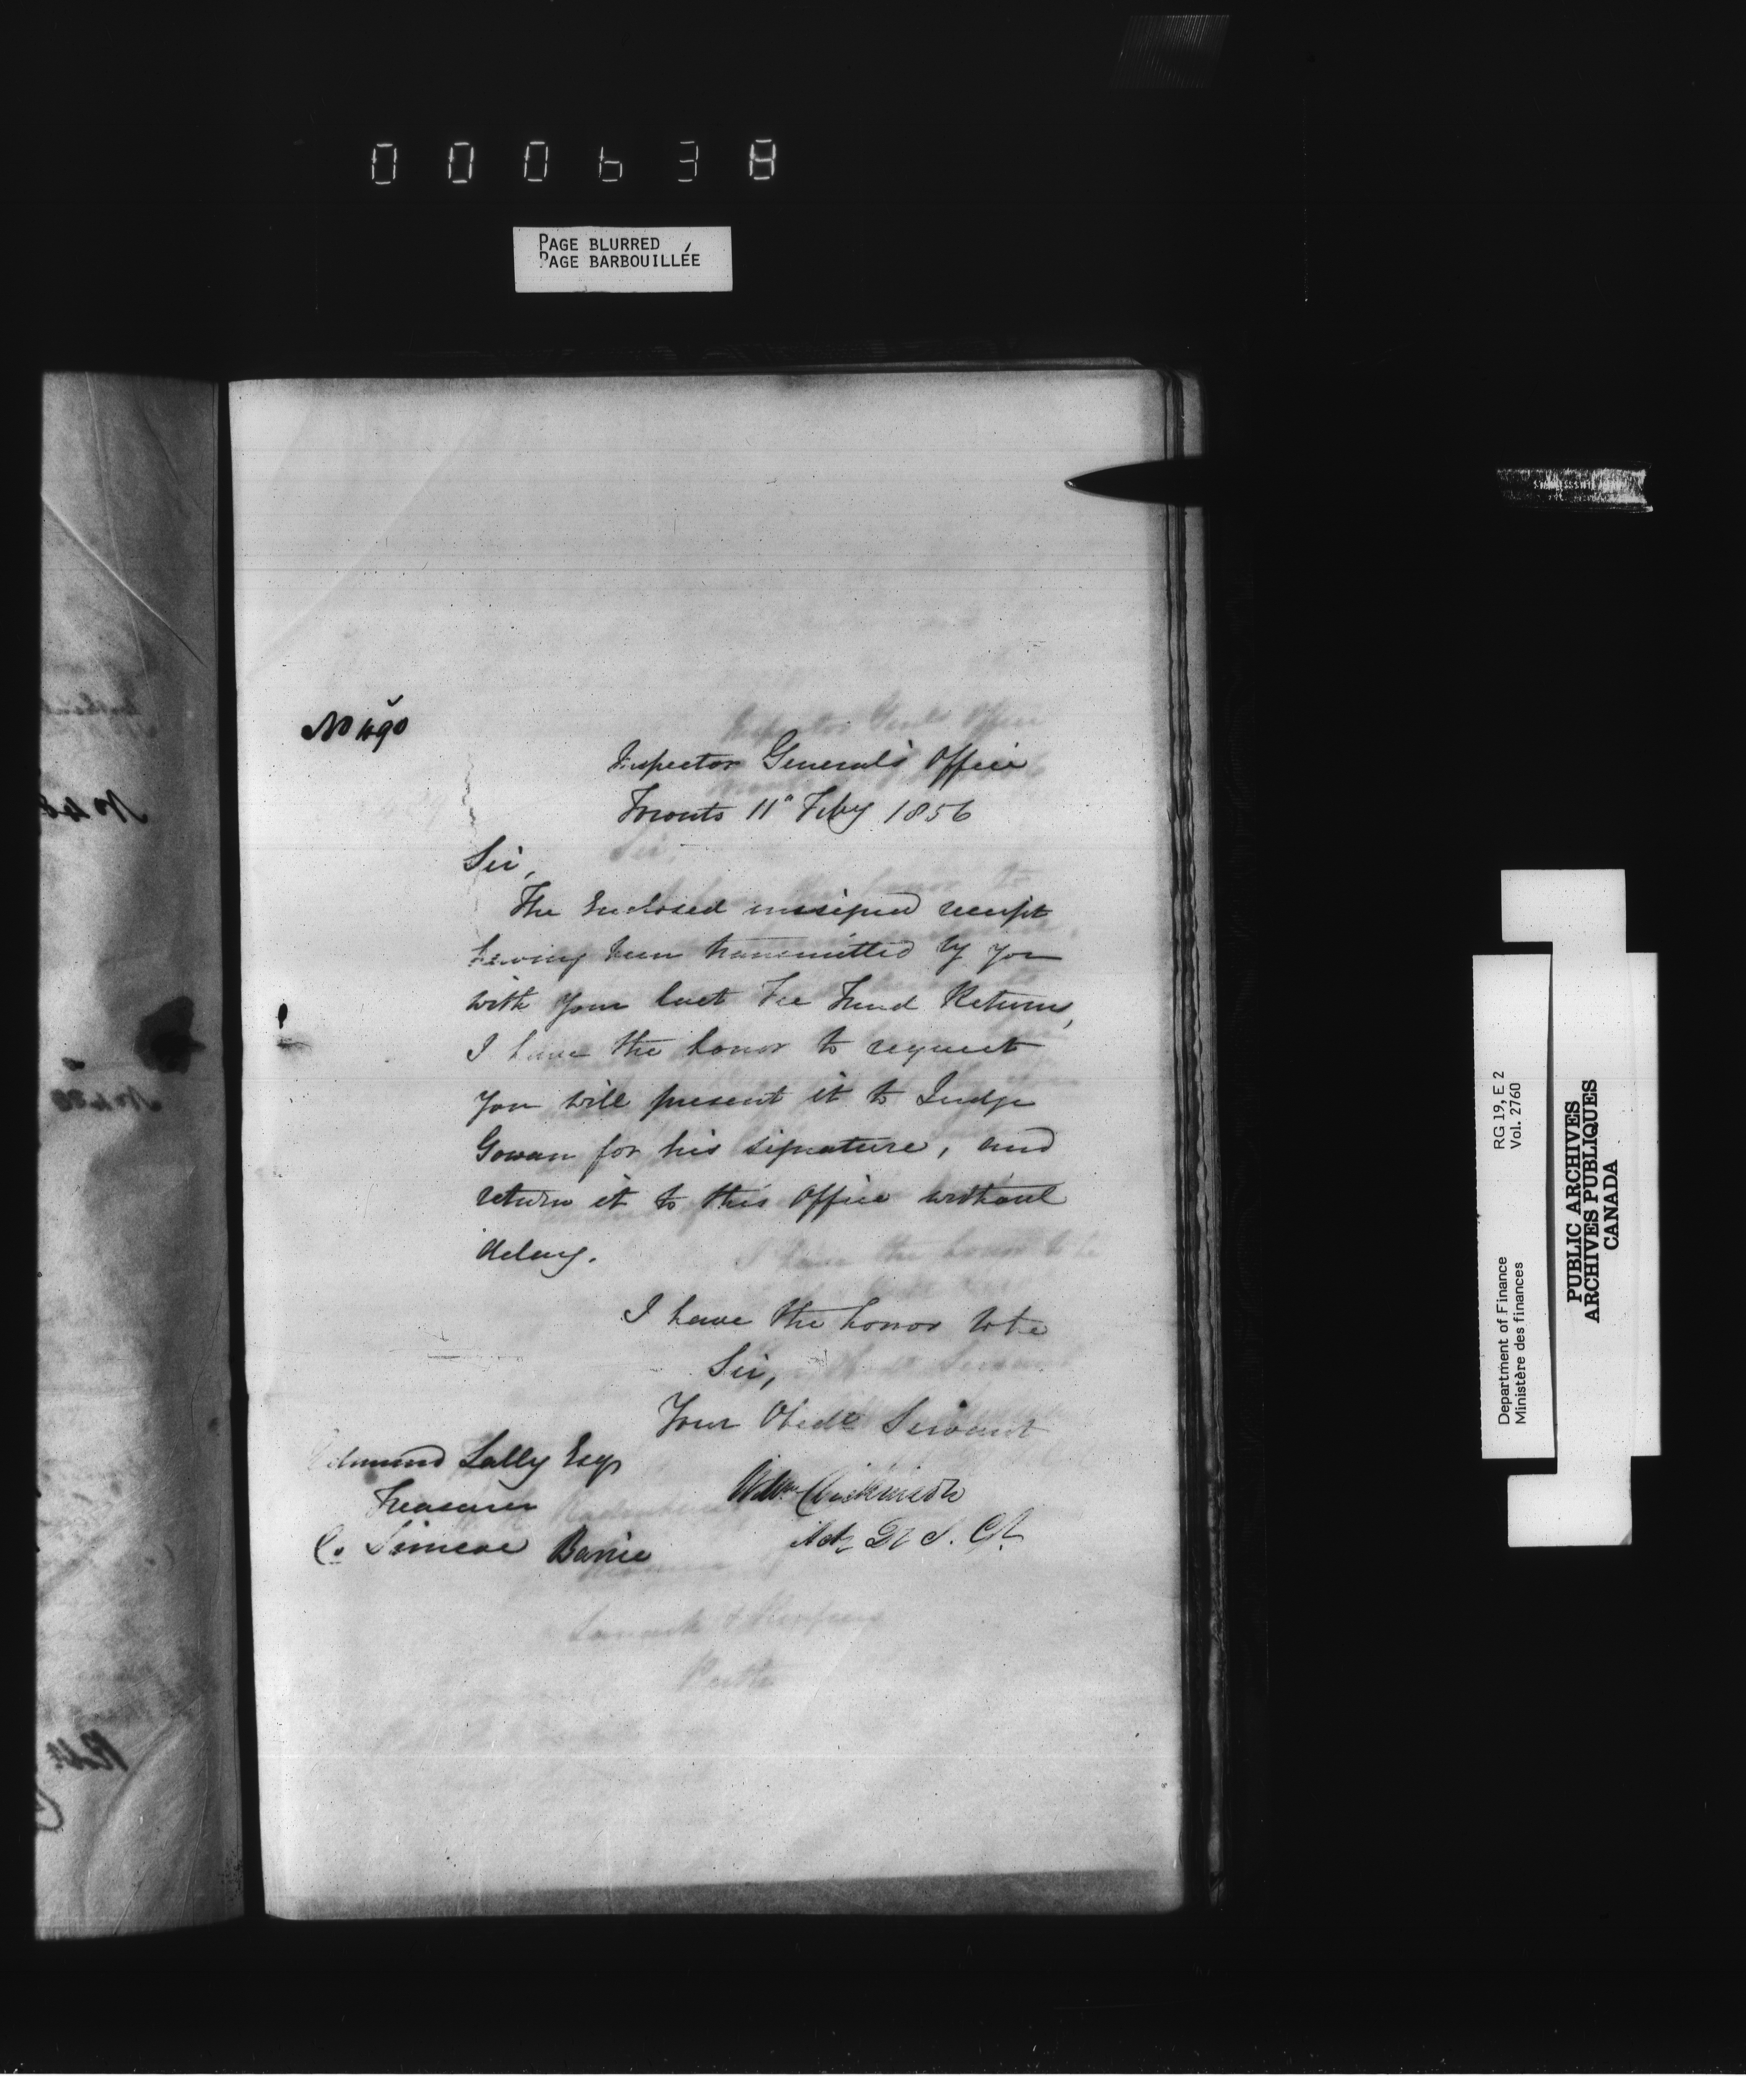 000638
PAGE BLURRED
PAGE BARBOUILLÉE
No 490
Inspector General's Office
Toronto 11" Feby 1856
Sir,
The Enclosed unsigned receipt
having been transmitted by you
with your last Fee Fund Returns,
I have the honor to request
you will present it to Judge
Gowan for his signature, and
return it to this Office without
delay.
I have the honor to be
Sir,
Your Obedt Servant
Wm Dickinson
Actg Dy I. Gl.
Edmund Lally Esqr
Treasurer
Co. Simcoe Barrie
Department of Finance RG 19, E 2
Ministère des finances Vol. 2760
PUBLIC ARCHIVES
ARCHIVES PUBLIQUES
CANADA